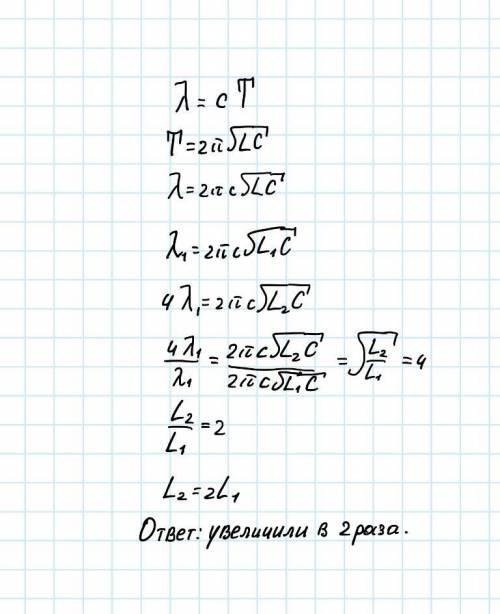 λ = c T
T = 2π√LC
λ = 2πc√LC
λ₁ = 2πc√L₁C
4λ₁ = 2πc√L₂C
4λ₁/λ₁ = 2πc√L₂C / 2πc√L₁C = √L₂/L₁ = 4
L₂/L₁ = 2
L₂ = 2L₁
Ответ: увеличили в 2 раза.